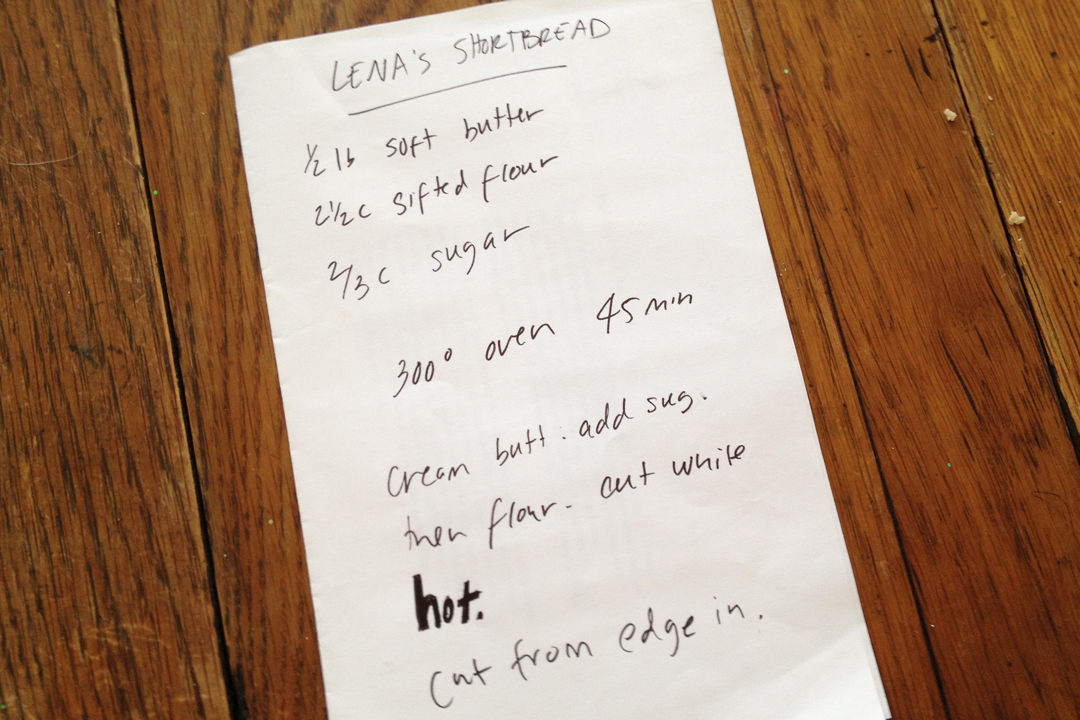 LENA'S SHORTBREAD
1/2 lb soft butter
2 1/2 c sifted flour
2/3 c sugar
300° oven 45 min
Cream butt. add sug.
then flour. cut while
hot.
Cut from edge in.